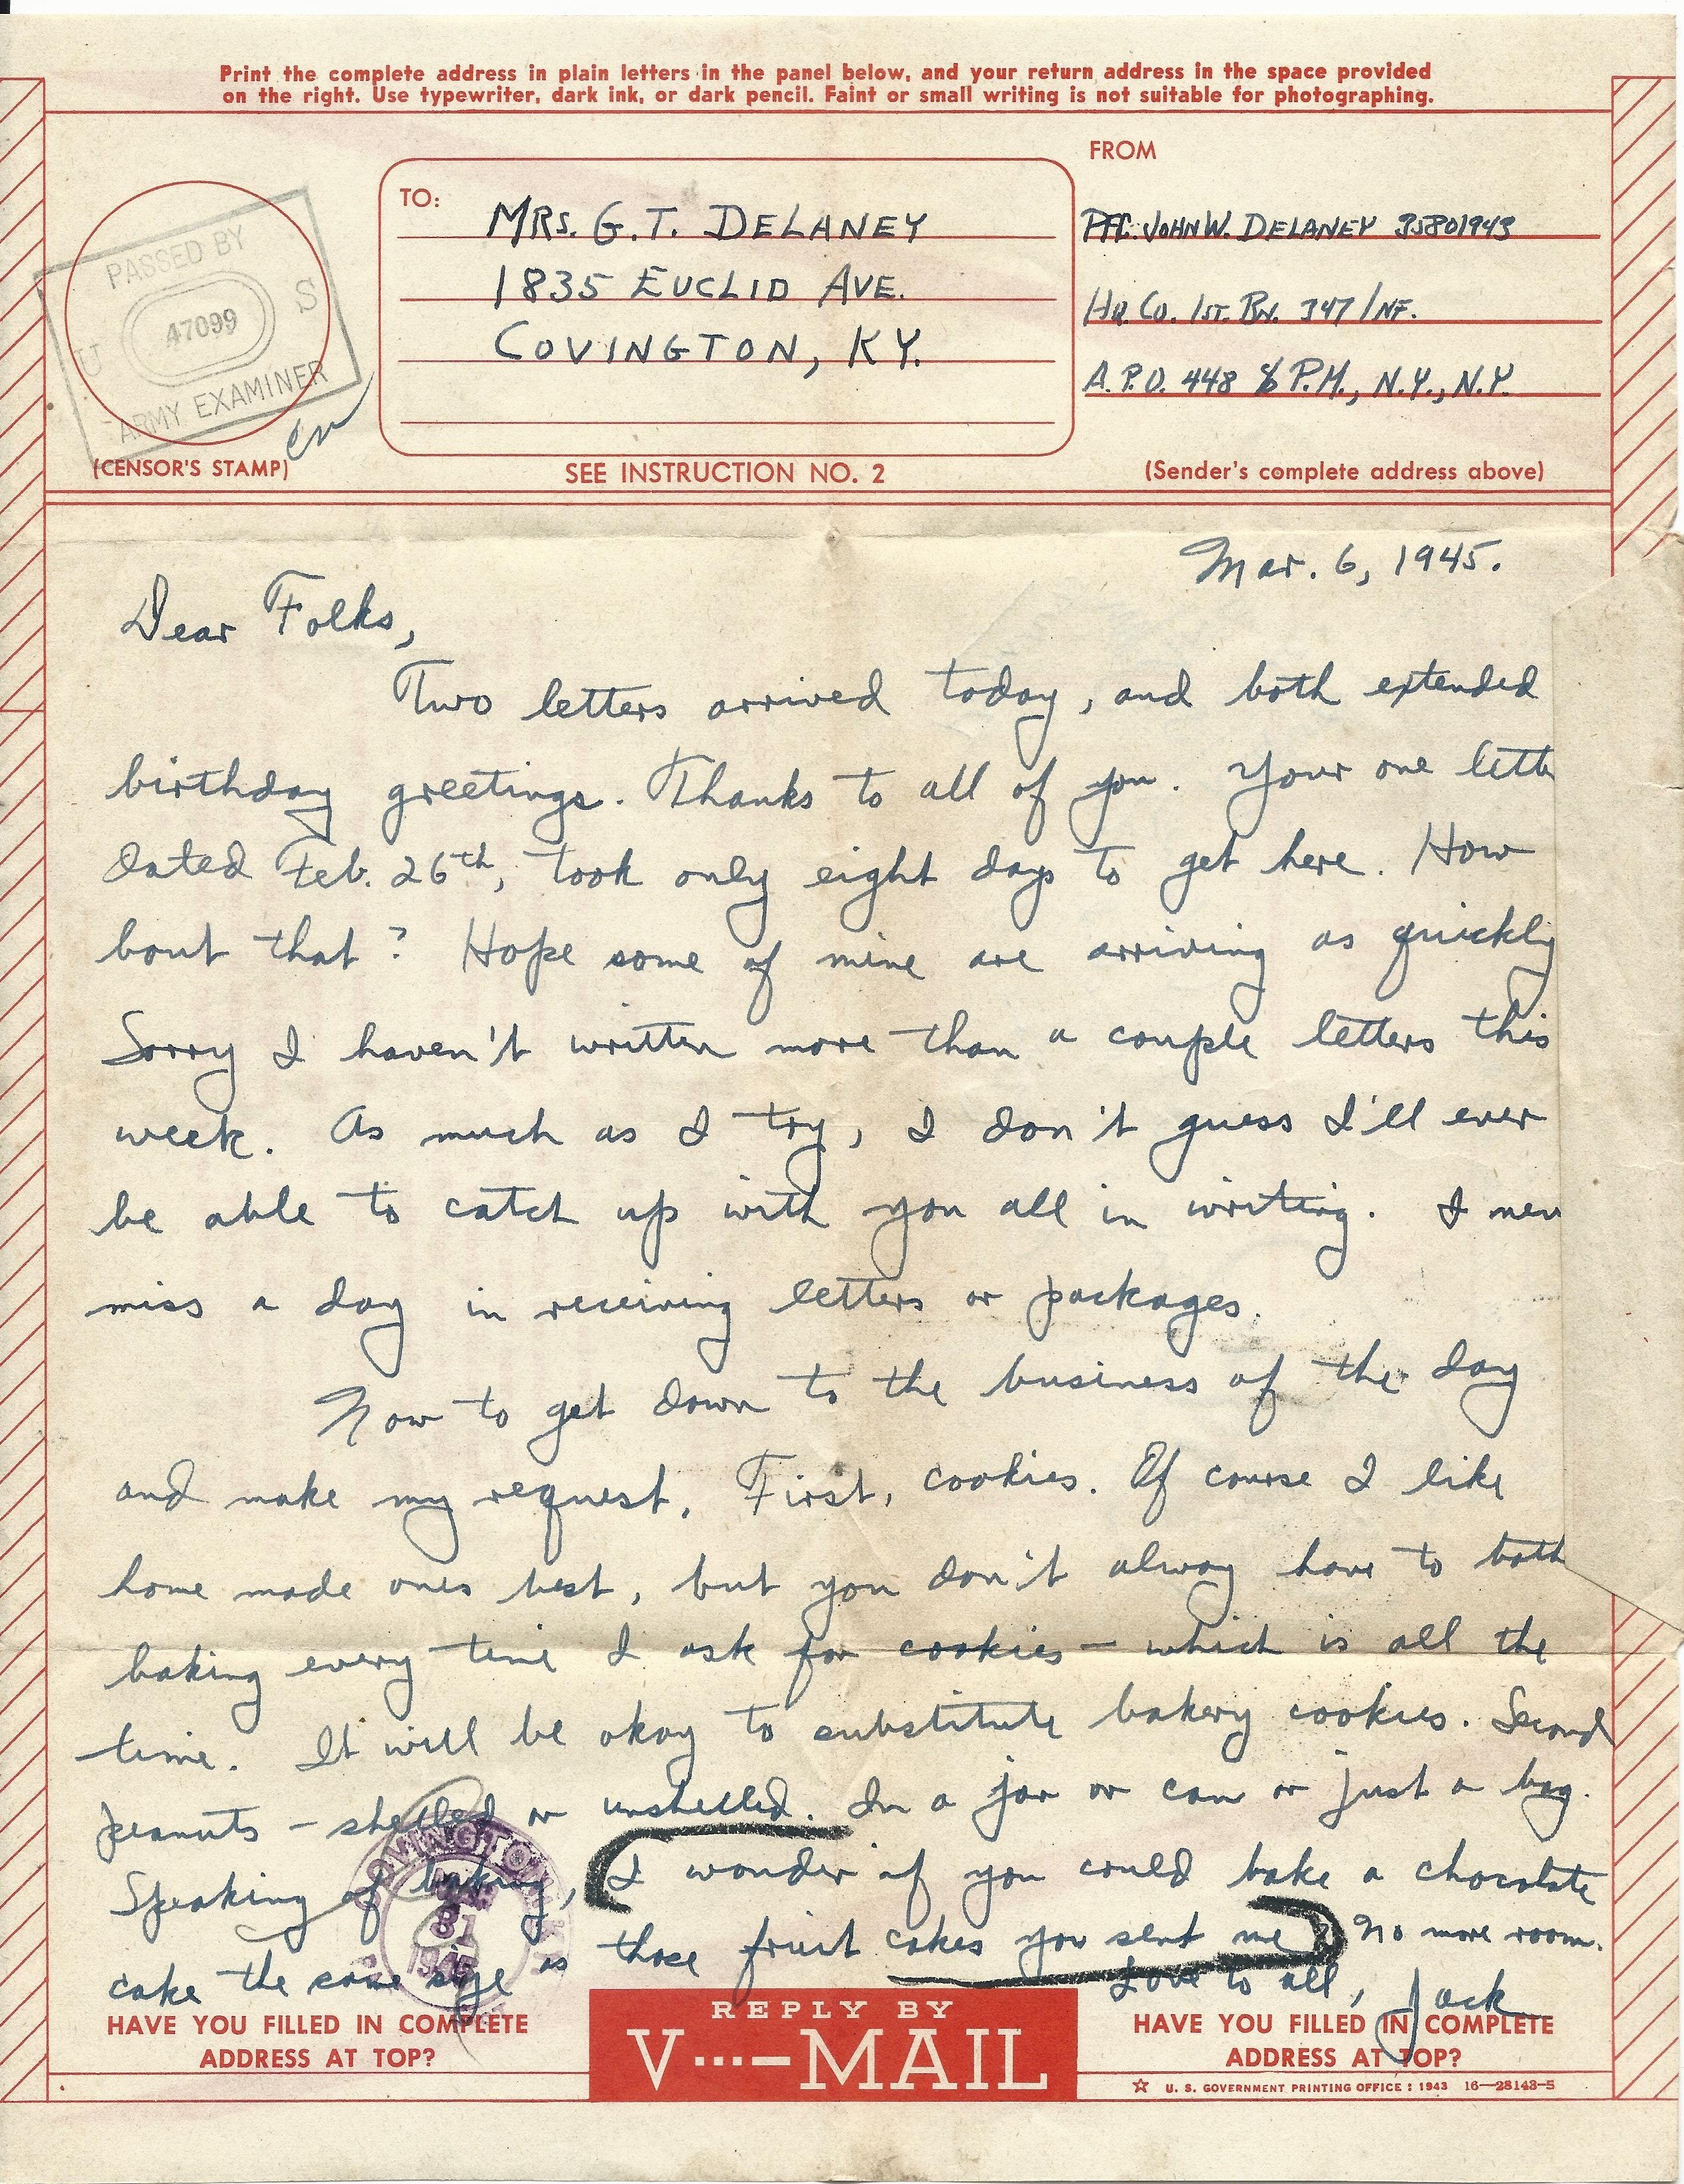 Print the complete address in plain letters in the panel below, and your return address in the space provided
on the right. Use typewriter, dark ink, or dark pencil. Faint or small writing is not suitable for photographing.
PASSED BY
U 47099 S
ARMY EXAMINER
(CENSOR'S STAMP)
TO:
MRS. G.T. DELANEY
1835 EUCLID AVE.
COVINGTON, KY.
SEE INSTRUCTION NO. 2
FROM
PFC. JOHN W. DELANEY 35801943
HQ. CO. 1ST. BN. 347 INF.
A.P.O. 448 % P.M., N.Y., N.Y.
(Sender's complete address above)
Mar. 6, 1945.
Dear Folks,
Two letters arrived today, and both extended
birthday greetings. Thanks to all of you. Your one lette
dated Feb. 26th, took only eight days to get here. How
bout that? Hope some of mine are arriving as quickly
Sorry I haven't written more than a couple letters this
week. As much as I try, I don't guess I'll ever
be able to catch up with you all in writing. I nev
miss a day in receiving letters or packages.
Now to get down to the business of the day
and make my request. First, cookies. Of course I like
home made ones best, but you don't alway have to both
baking every time I ask for cookies - which is all the
time. It will be okay to substitute bakery cookies. Second
peanuts - shelled or unshelled. In a jar or can or just a bag.
Speaking of baking, I wonder if you could bake a chocolate
cake the same size as those fruit cakes you sent me? No more room.
Love to all, Jack
COVINGTON
31
1945
HAVE YOU FILLED IN COMPLETE
ADDRESS AT TOP?
REPLY BY
V···—MAIL
HAVE YOU FILLED IN COMPLETE
ADDRESS AT TOP?
☆ U. S. GOVERNMENT PRINTING OFFICE : 1943 16—28143-5